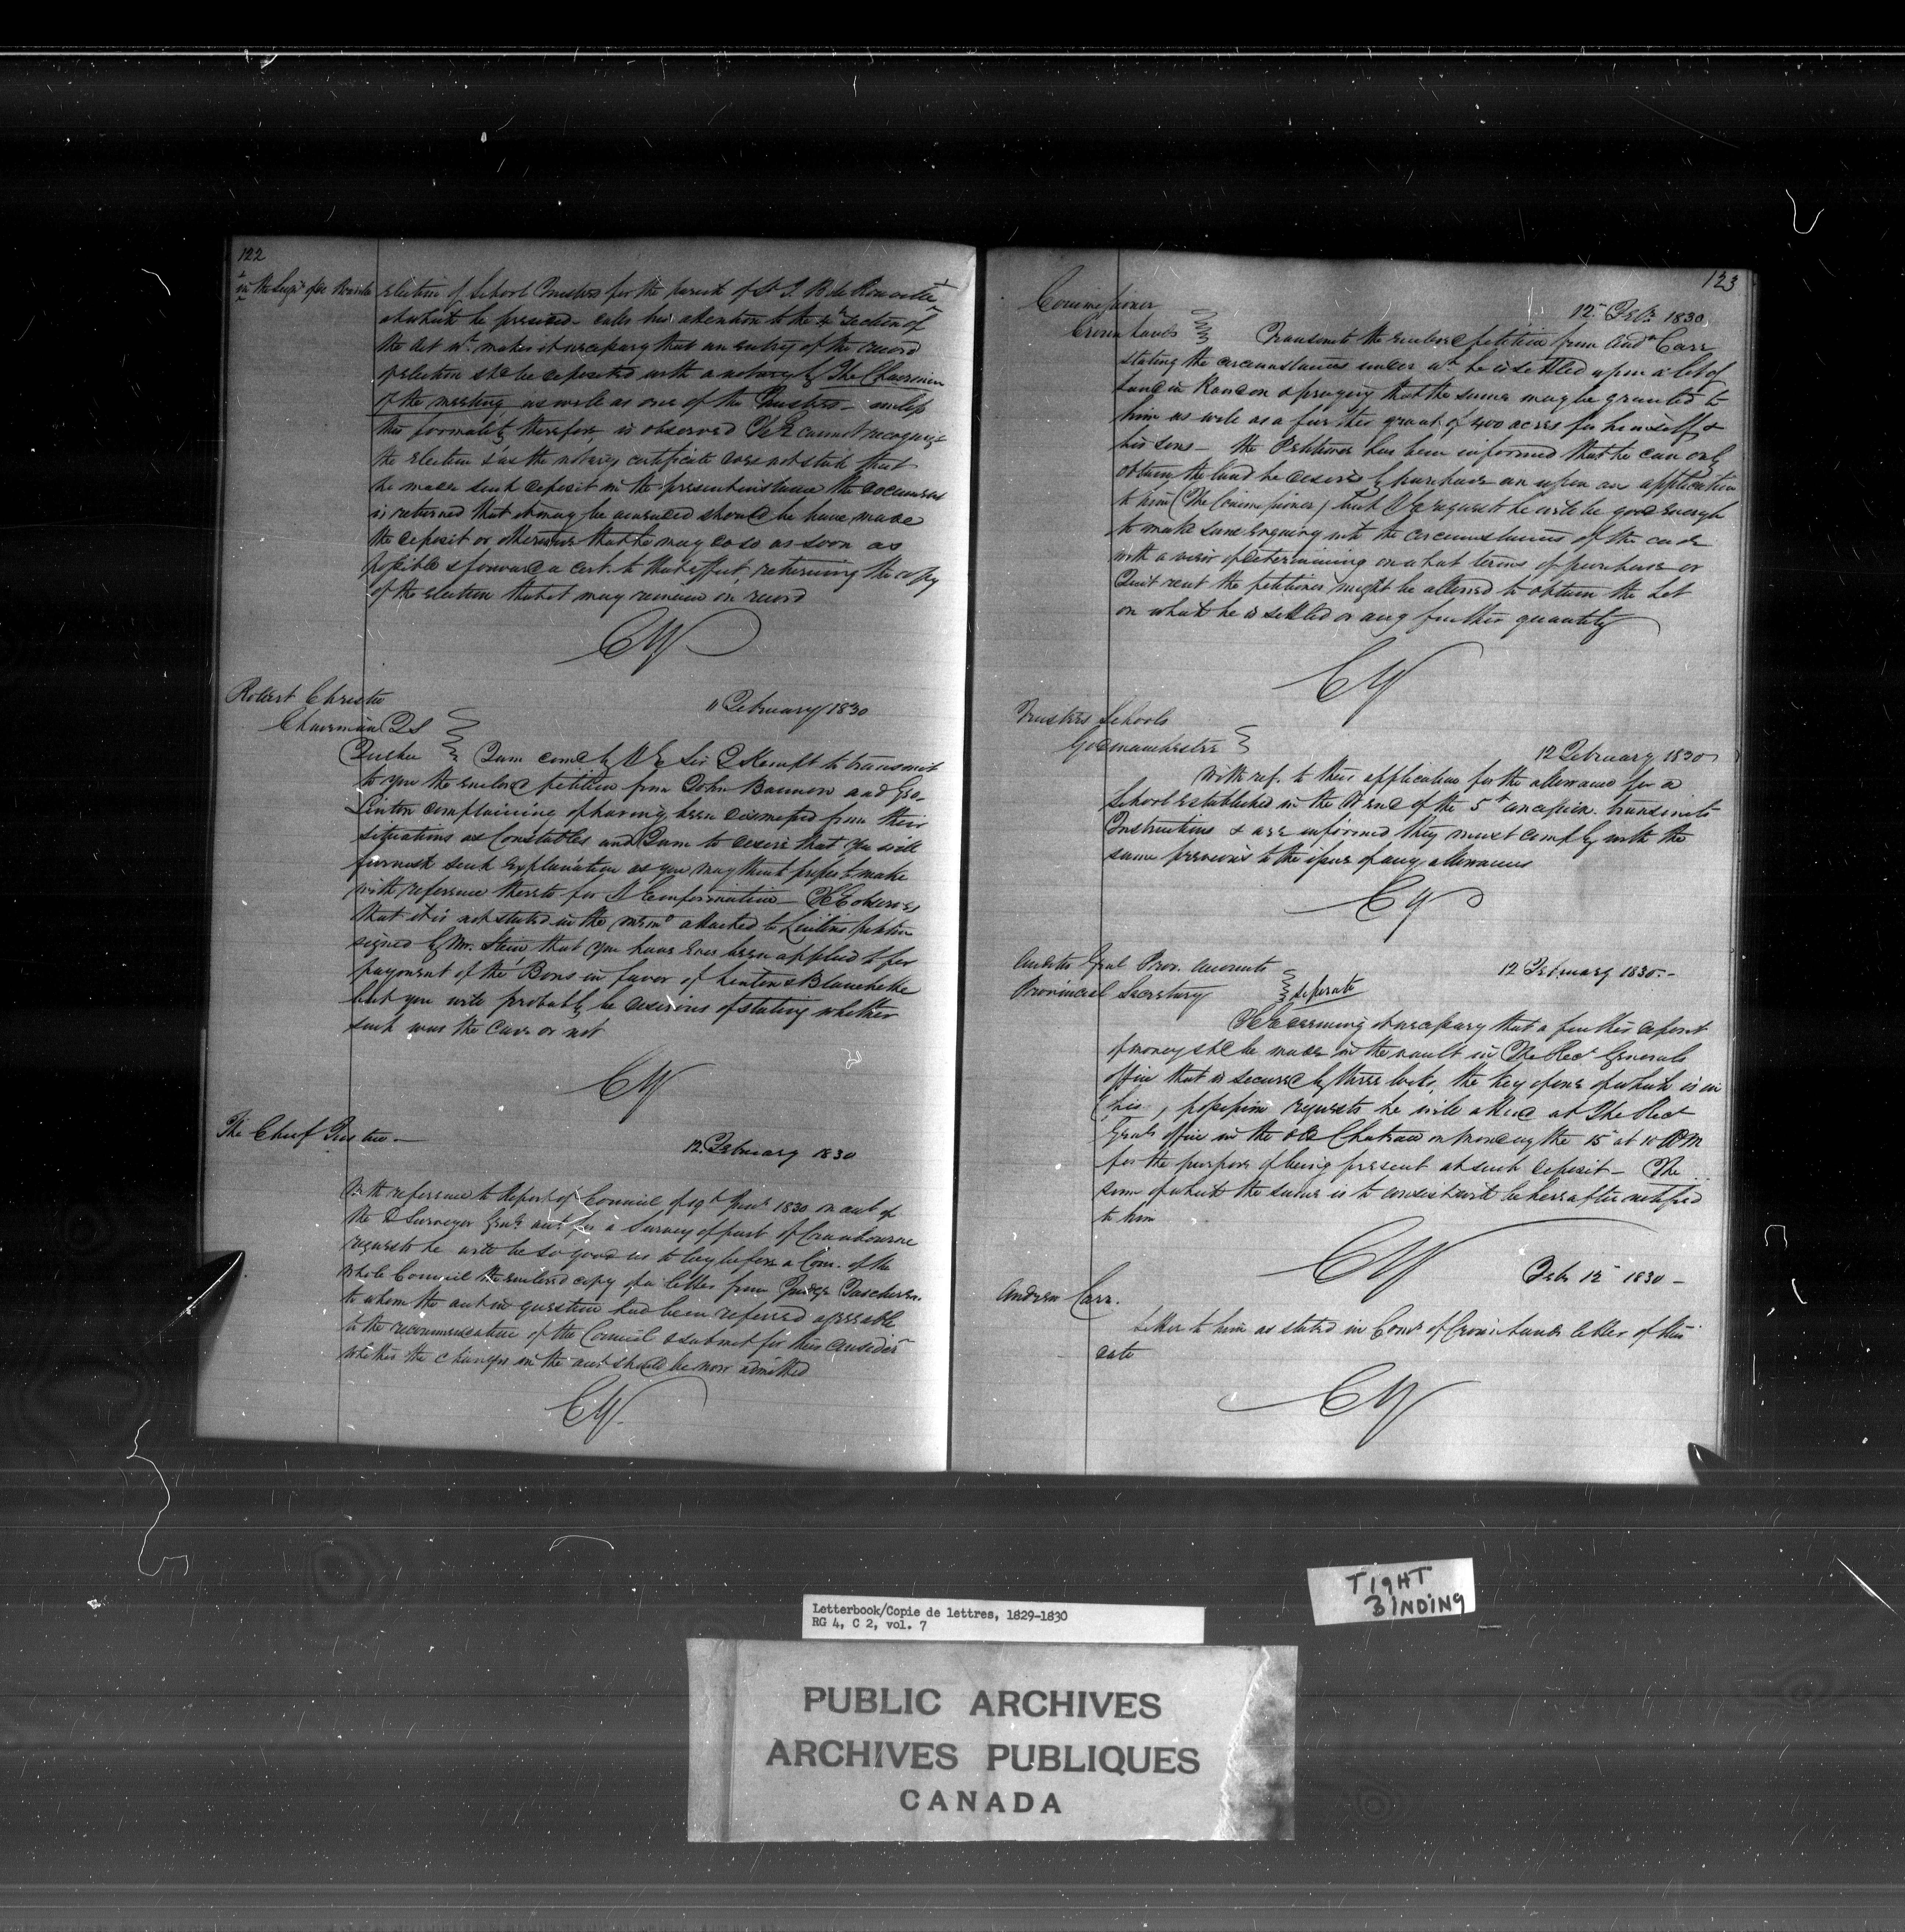 122
in the Seigy of de Rouville
election of School Trustees for the parish of St J. B de Rouville
at which he presided - calls his attention to the 4th section of
the Act wh. makes it necessary that an entry of the record
of election shd be deposited with a notary by The Chairman
of the meeting as well as one of the Trustees - unless
this formality therefore, is observed H E cannot recognize
the election & as the notary certificate does not state that
he made such deposit in the present instance the document
is returned that it may be amended should he have made
the deposit or otherwise that he may do so as soon as
possible & forward a cert. to that effect, returning the copy
of the election that it may remain on record
CY
Robert Christie
Chairman QS
Quebec
11 February 1830
I am comd by H E Sir J Kempt to transmit
to you the enclosed petition from John Bannon and Geo.
Linton complaining of having been dismissed from their
situations as Constables and I am to desire that you will
furnish such explanation as you may think proper to make
with reference thereto for H E information - H E observes
that it is not stated in the memo attached to Lintons petition
signed by Mr. Stein, that you have ever been applied to for
payment of the Bons in favor of Linton & Blanchette
but you will probably be desirous of stating whether
such was the case or not
CY
The Chief Justice -
12 February 1830
With reference to Report of Council of 19th Jany 1830 on act of
the D Surveyor Genl. act for a Survey of part of Cranbourne
requests he will be so good as to lay before a Com. of the
whole Council the enclosed copy of a letter from Judge Taschereau
to whom the act in question had been referred agreeable
to the recommendation of the Council & submit for their consider
whether the charges in the act should be now admitted
CY
123
Commissioner
Crown Lands
12 Feby. 1830
Transmits the enclosed petition from Andw Carr
stating the circumstances under wh. he is settled upon a lot of
land in Rawdon & praying that the same may be granted to
him as well as a further grant of 400 acres for himself &
his sons - the Petitioner has been informed that he can only
obtain the land he desires by purchase an upon an application
to him (The Commissioner) but H E requests he will be good enough
to make some enquiry into the circumstances of the case
with a view of determining on what terms of purchase or
Quit rent the petitioner might be allowed to obtain the Lot
on which he is settled or any further quantity
CY
Trustees Schools
Godmanchester
12 February 1830
With ref. to their application for the allowance for a
School established in the W end of the 5th concession. transmits
Instructions & are informed they must comply with the
same previous to the issue of any allowances
CY
Auditor Genl Prov. Accounts
Provincial Secretary
separate
12 February 1830. -
H E deeming it necessary that a further deposit
of money shd be made in the vault in The Recr Generals
office that is secured by three locks, the key of one of which is in
(his) possession requests he will attend at The Recr
Genls office in the old Chateau on Monday the 15 at 10 AM
for the purpose of being present at such deposit - The
sum of which the same is to consist will be hereafter notified
to him
CY
Feby 12 1830 -
Andrew Carr.
Letter to him as stated in Comr of Crown Lands letter of this
date
CY
TIGHT
BINDING
Letterbook/Copie de lettres, 1829-1830
RG 4, C 2, vol. 7
PUBLIC ARCHIVES
ARCHIVES PUBLIQUES
CANADA